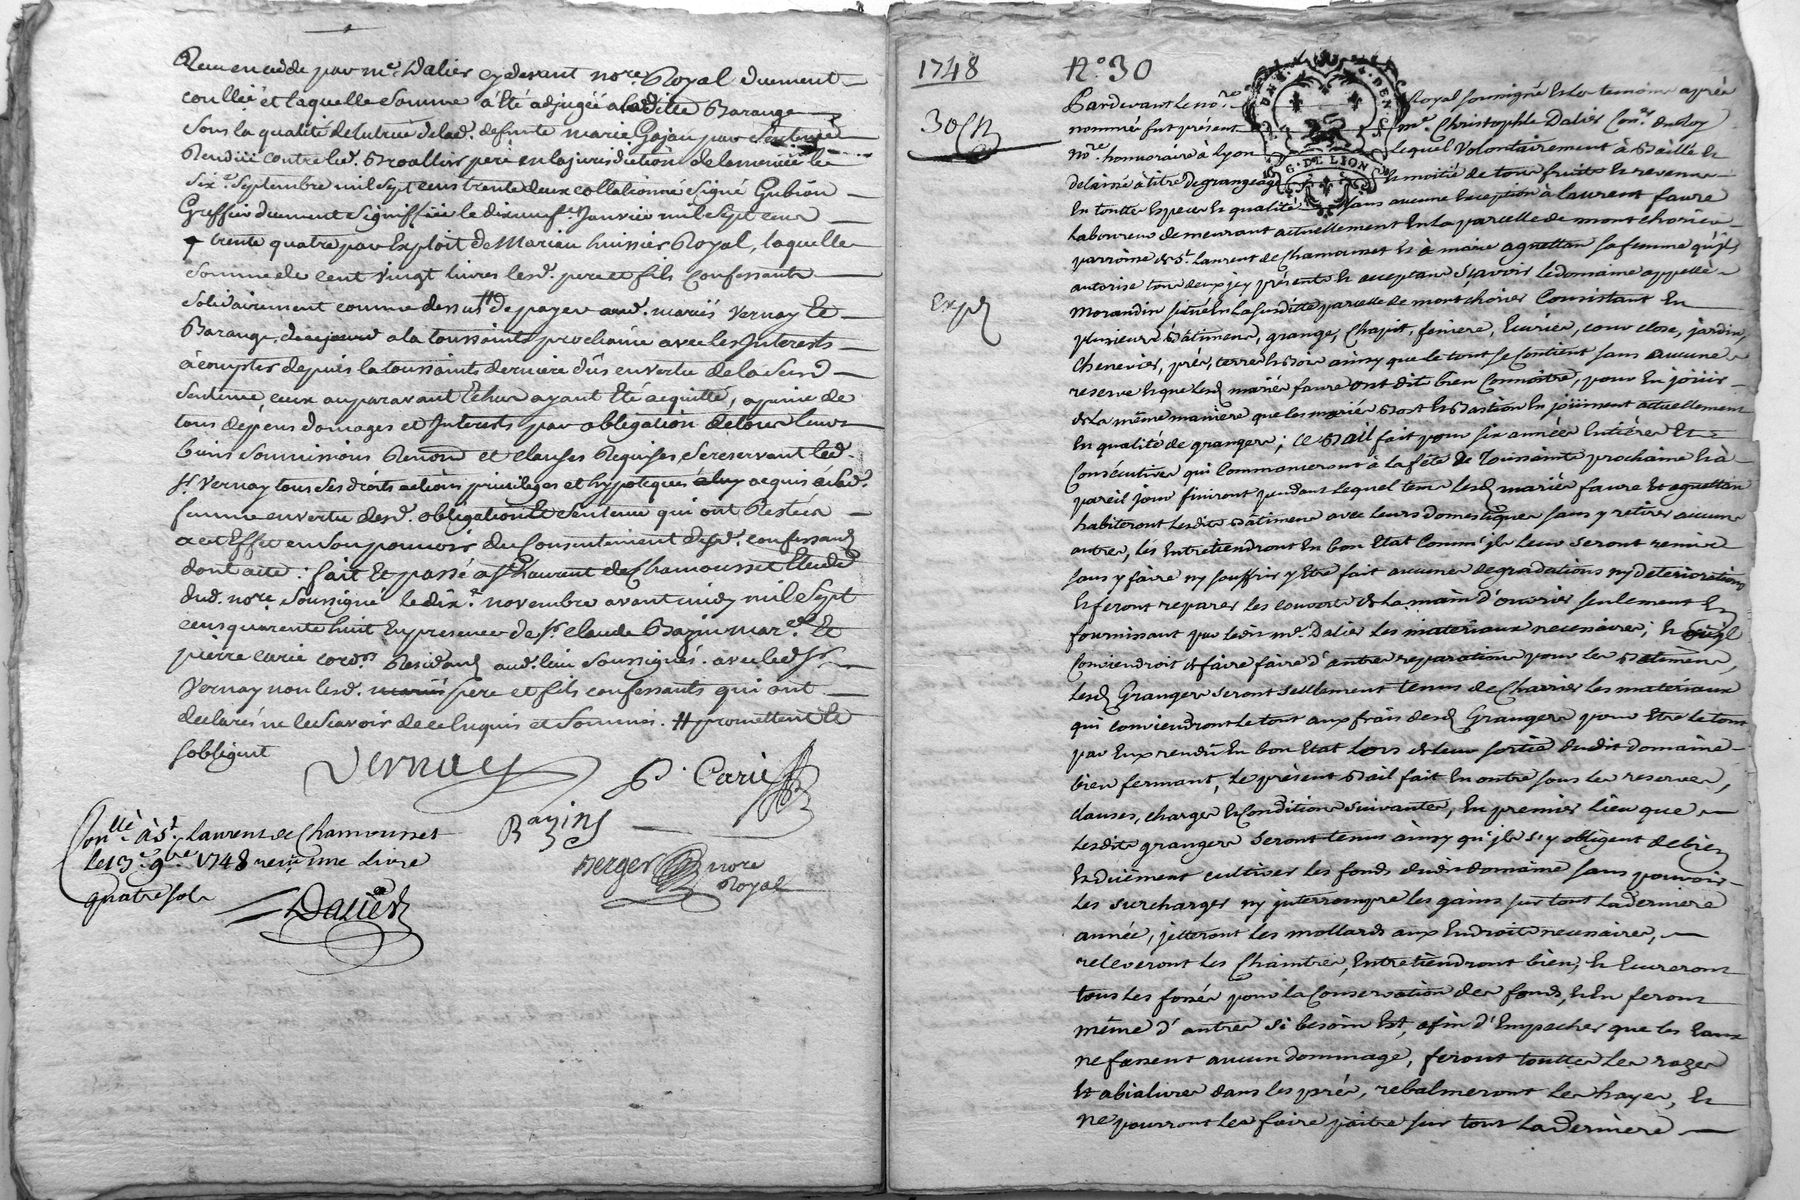 Receu en cedde par me. Dalier cydevant nore. Royal duement
conllée et laquelle somme a été adjugée a laditte Barange
sous la qualité de tutrice delad. defunte marie Gojon par sentence
Rendüe contre led. père en la jurisdiction de le
six. septembre mil sept cens trente deux collationné signé Gubian
Greffier duement signiffiée le dixneuf. Janvier mil sept cens
trente quatre par Exploit de Mariau huissier Royal, laquelle
somme de cent vingt livres lesd. pere et fils confessants
solidairement comme dessus # de payer aud. mariés Vernay et
Barange, a la toussaints prochaine avec les Interests
à compter depuis la toussaints derniere dûs en vertu de la susd
sentence, ceux auparavant Echus ayant Eté acquitté, a peine de
tous dépens domages et Interests par obligation de tous leurs
biens soumissions Renon et clauses Requises, se reservant led.
sr Vernay tous ses droits actions privileges et hypoteques acquis à sad.
femme en vertu desd. obligation Et sentence qui ont Restés
a cet Effet en son pouvoir du Consentement desd. confessans
dont acte : fait Et passé a st Laurent de Chamousset Etude
dud. nore. soussigné le dix. novembre avant midy mil sept
cens quarente huit En presence de sr. claude Bazin mard. Et
pierre carie cord. Residans aud. lieu soussignés. avec led sr.
Vernay non lesd. mariés père et fils confessants qui ont
declarés ne le sçavoir de ce Enquis et sommés. # promettent et
sobligent
Vernay P. Carie
Bazins
Conllé à st. Laurent de Chamousset
le 13e. 9bre. 1748 reçu une Livre
quatre sols
Berger nore
Royal
Dalier
1748
No. 30
30 Ch
Exp
Pardevant le nore. Royal soussigné Et les temoins après
nommés fut présent me. Christophle Dalier Coner. du Roy
nore. honnoraire à Lyon lequel Volontairement à Baillé Et
delaissé à titre de grangeage Et moitié de tous fruits Et revenus
En toutte Espece Et qualité sans aucune Exception à laurent faure
Laboureur demeurant actuellement En La parcelle de mont chorier
parroisse de St. Laurent de Chamousset Et à marie aguettan sa femme qu'il
autorise tous deux jcy présents Et acceptans sçavoir le domaine appellé
morandin situé En La susditte parcelle de mont chorier Consistant En
plusieurs Bâtimens, grange, Chapit, feniere, Ecuries, cour close, jardin,
Chenevier, prés, terres Et Bois ainsy que le tout se Contient sans aucune
reserve Et que Lesd mariés faure ont dits bien Connoitre, pour En joüir
de La même maniere que les mariés Bast Et Bastion En joüissent actuellement
En qualité de grangers ; ce Bail fait pour six années Entières Et
Consécutives qui Commanceront à La fête de Toussaints prochaine Et à
pareil jour finiront pendant Lequel tems Lesd mariés faure Et aguettan
habiteront Lesdits Bâtimens avec Leurs domestiques sans y retirer aucuns
autres, Lés Entretiendront En bon Etat Comm'jls Leur seront remis
sans y faire ny souffrir y Etre fait aucunes degradations ny deteriorations
Et feront reparer les couverts de La main d'ouvrier seulement En
fournissant par ledit me. Dalier Les matériaux necessaires ; Et où jl
Conviendroit de faire faire d'autres reparations pour les Batimens,
Lesd Grangers seront seulement tenus de Charrier Les materiaux
qui conviendront Le tout aux frais desd Grangers pour Etre Le tout
par Eux rendû En bon Etat Lors de Leur sortie dudit domaine
bien fermant, Le présent Bail fait En outre sous Les reserves,
clauses, charges Et Conditions suivantes, En premier Lieu que
Lesdits grangers seront tenus ainsy qu'jls s'y obligent de bien
Et düement cultiver les fonds dudit domaine sans pouvoir
Les surcharger ny jnterrompre les gains sur tout La derniere
année, jetteront Les mollards aux Endroits necessaires,
releveront Les Chaintres, Entretiendront bien, Et Cureront
tous Les fossés pour La Conservation des fonds, Et En feront
même d'autres si besoin Est, afin d'Empecher que les Eaux
ne fassent aucun dommage, feront touttes Les razes
Et abialures dans les prés, rebalmeront Les hayes, Et
ne pourront Les faire paitre sur tout La derniere